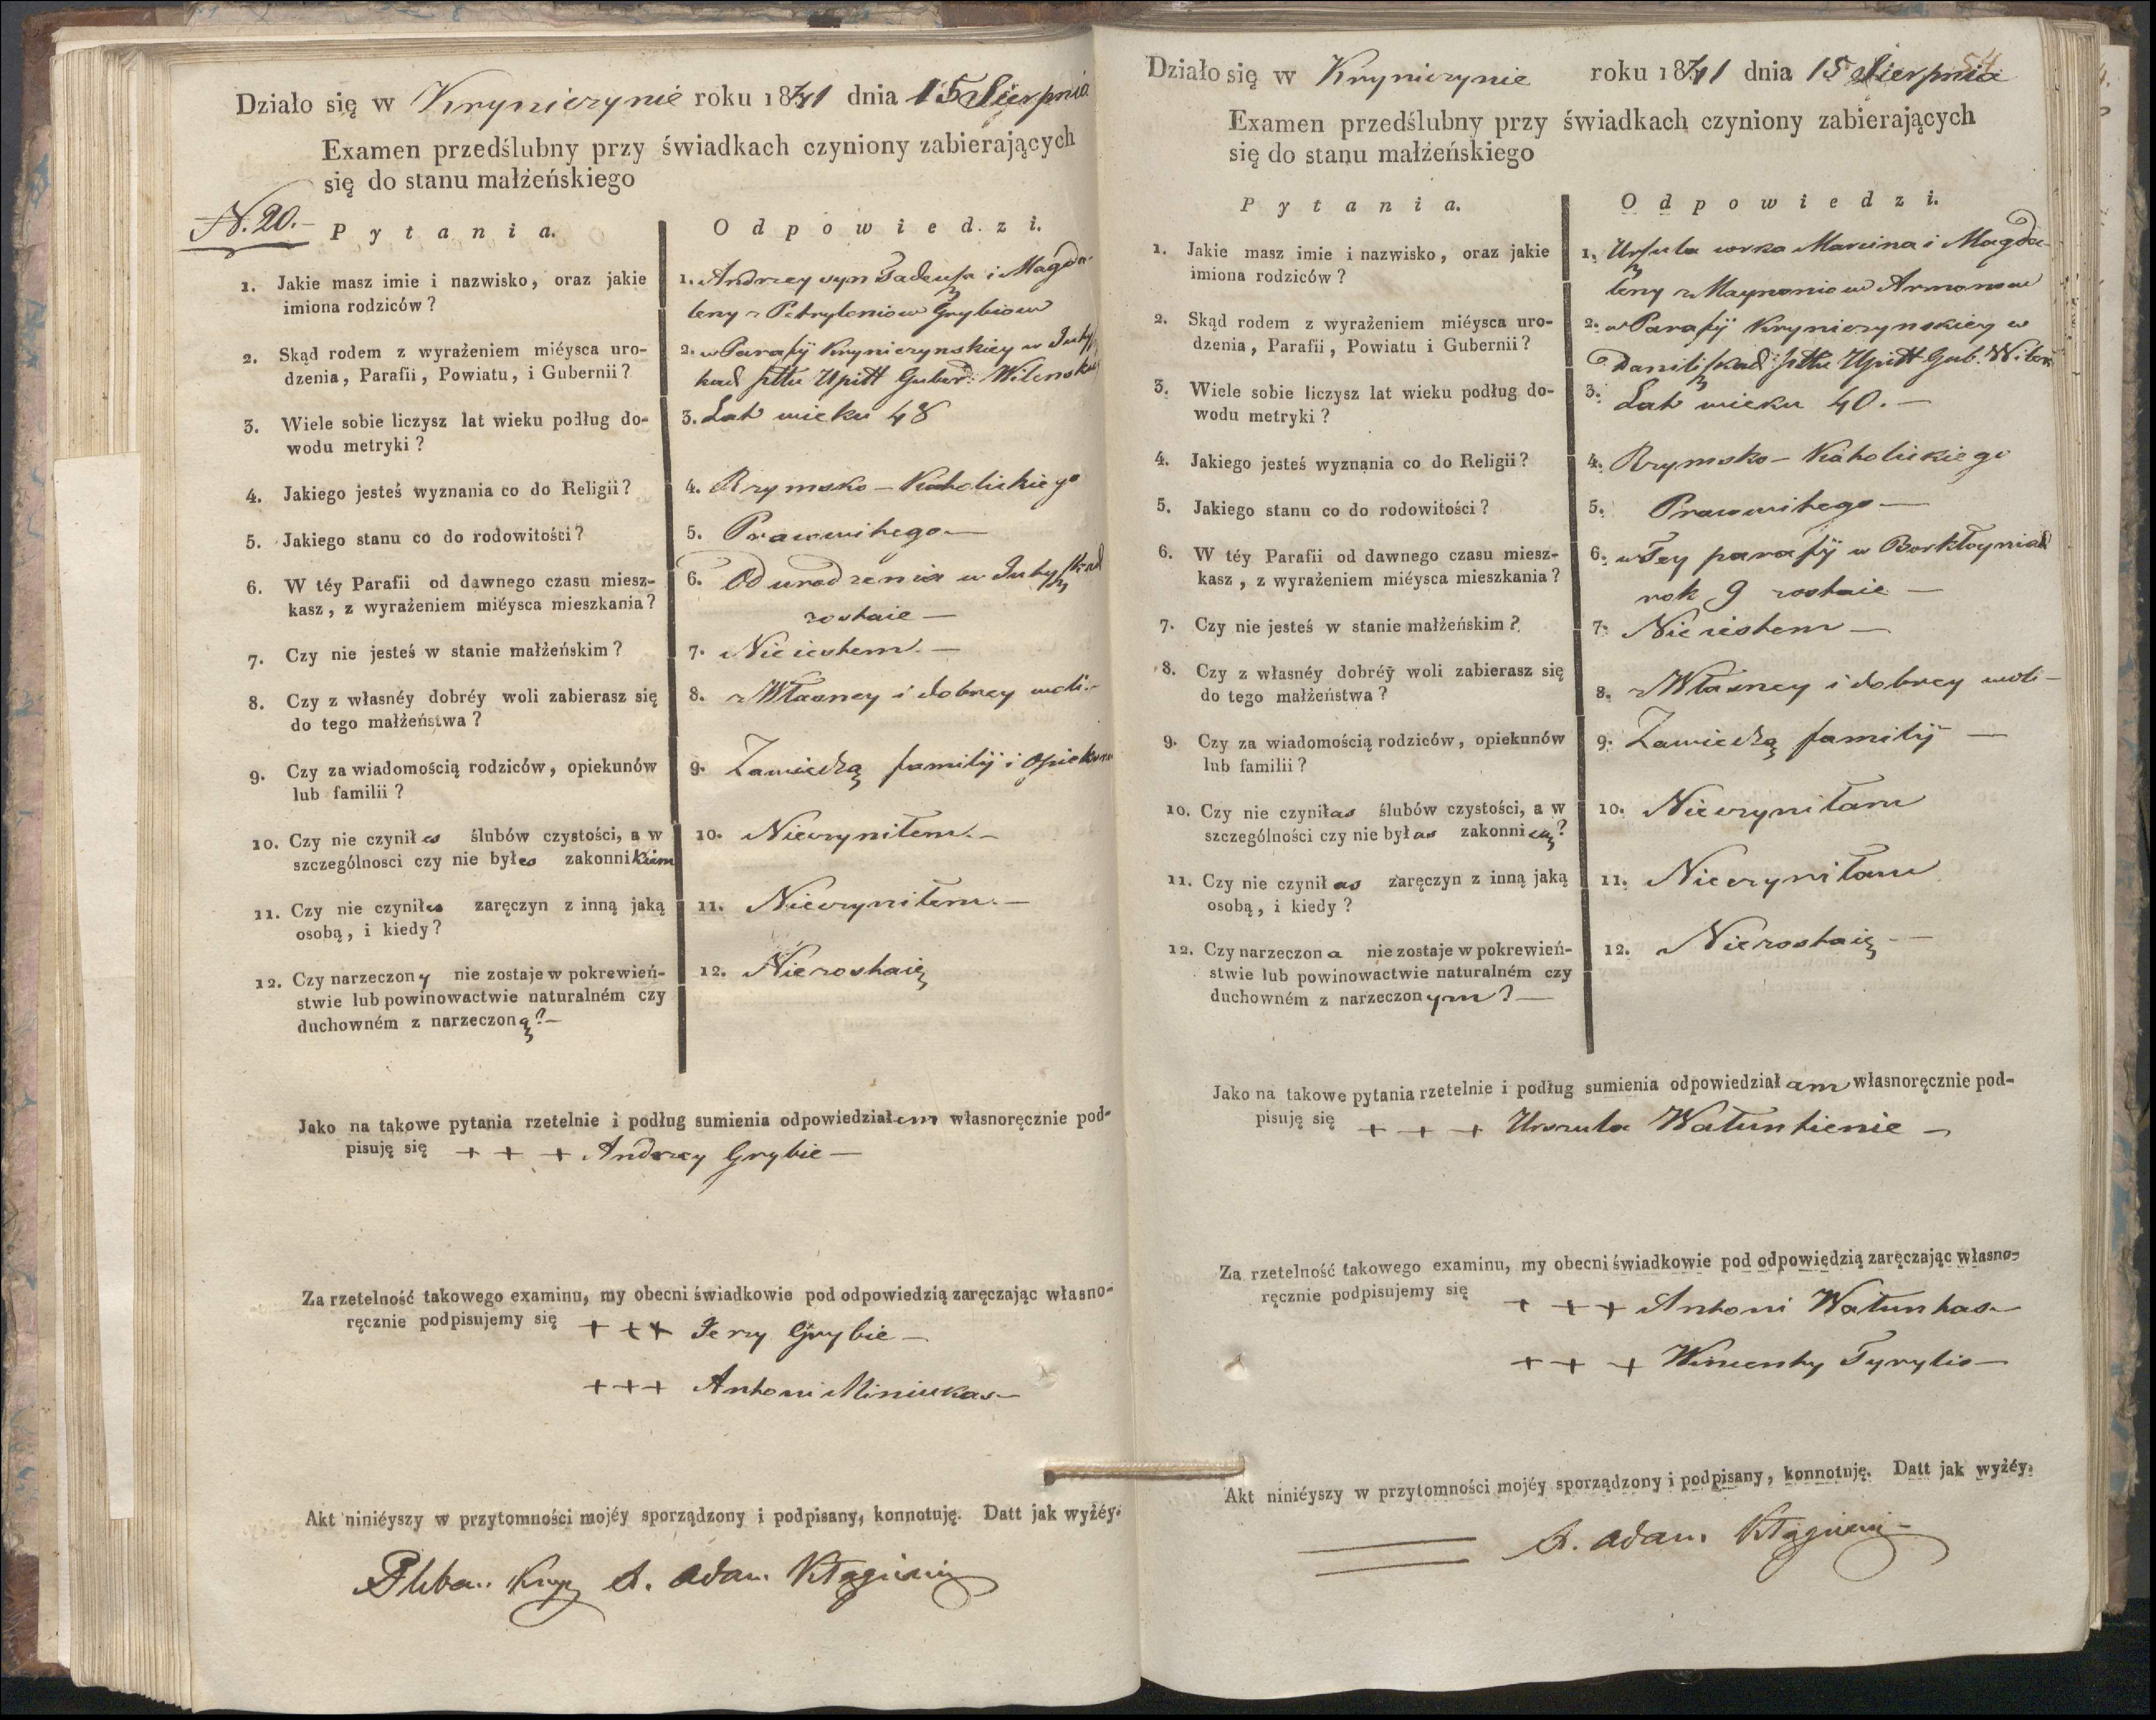 Działo się w Kryniczynie roku 1841 dnia 15 Sierpnia
Examen przedślubny przy świadkach czyniony zabierających
się do stanu małżeńskiego
N. 20.-
Pytania.
Odpowiedzi.
1. Jakie masz imie i nazwisko, oraz jakie
imiona rodziców?
1. Andrzey syn Tadeusza i Magda-
leny z Petryleniow Grybiow
2. Skąd rodem z wyrażeniem miéysca uro-
dzenia, Parafii, Powiatu, i Gubernii?
2. w Parafij Kryniczynskiey w
pttu Upitt Guber: Wilenskiey
3. Wiele sobie liczysz lat wieku podług do-
wodu metryki?
3. Lat wieku 48
4. Jakiego jesteś wyznania co do Religii?
4. Rzymsko-Katolickiego
5. Jakiego stanu co do rodowitości?
5. Prawowitego-
6. W téy Parafii od dawnego czasu miesz-
kasz, z wyrażeniem miéysca mieszkania?
6. Od urodzenia w
zostaie-
7. Czy nie jesteś w stanie małżeńskim?
7. Nie iestem.-
8. Czy z własnéy dobréy woli zabierasz się
do tego małżeństwa?
8. z Własney i dobrey woli.-
9. Czy za wiadomością rodziców, opiekunów
lub familii?
9. Zawiedzą familij i opiekunow
10. Czy nie czyniłes ślubów czystości, a w
szczególnosci czy nie byłes zakonnikiem
10. Nieczyniłem.-
11. Czy nie czyniłes zaręczyn z inną jaką
osobą, i kiedy?
11. Nieczyniłem.-
12. Czy narzeczony nie zostaje w pokrewień-
stwie lub powinowactwie naturalném czy
duchowném z narzeczoną?-
12. Niezostaię
Jako na takowe pytania rzetelnie i podług sumienia odpowiedziałem własnoręcznie pod-
pisuję się + + + Andrzey Grybie-
Za rzetelność takowego examinu, my obecni świadkowie pod odpowiedzią zaręczając własno-
ręcznie podpisujemy się + + + Jerzy Grybie-
+ + + Antoni Miniukas-
Akt niniéyszy w przytomności mojéy sporządzony i podpisany, konnotuję. Datt jak wyżéy.
Pleban X. Adam
54
Działo się w Kryniczynie roku 1841 dnia 15 Sierpnia
Examen przedślubny przy świadkach czyniony zabierających
się do stanu małżeńskiego
Pytania.
Odpowiedzi.
1. Jakie masz imie i nazwisko, oraz jakie
imiona rodziców?
1. Urszula corka Marcina i Magda-
leny z Maynoniow Armonow
2. Skąd rodem z wyrażeniem miéysca uro-
dzenia, Parafii, Powiatu i Gubernii?
2. w Parafij Kryniczynskiey w
Daniliszkach pttu Upitt Gub. Wilen
3. Wiele sobie liczysz lat wieku podług do-
wodu metryki?
3. Lat wieku 40.-
4. Jakiego jesteś wyznania co do Religii?
4. Rzymsko-Katolickiego
5. Jakiego stanu co do rodowitości?
5. Prawowitego-
6. W téy Parafii od dawnego czasu miesz-
kasz, z wyrażeniem miéysca mieszkania?
6. w Tey parafij w Borkłoyniach
rok 9 zostaie-
7. Czy nie jesteś w stanie małżeńskim?
7. Nie iestem-
8. Czy z własnéy dobréy woli zabierasz się
do tego małżeństwa?
8. z Własney i dobrey woli-
9. Czy za wiadomością rodziców, opiekunów
lub familii?
9. Zawiedzą familij-
10. Czy nie czyniłas ślubów czystości, a w
szczególności czy nie byłas zakonnicą?
10. Nieczyniłam
11. Czy nie czyniłas zaręczyn z inną jaką
osobą, i kiedy?
11. Nieczyniłam
12. Czy narzeczona nie zostaje w pokrewień-
stwie lub powinowactwie naturalném czy
duchowném z narzeczonym?-
12. Niezostaię-
Jako na takowe pytania rzetelnie i podług sumienia odpowiedziałam własnoręcznie pod-
pisuję się + + + Urszula Watuntienie-
Za rzetelność takowego examinu, my obecni świadkowie pod odpowiedzią zaręczając własno-
ręcznie podpisujemy się + + + Antoni Watuntas-
+ + + Wincenty Tyrylis-
Akt niniéyszy w przytomności mojéy sporządzony i podpisany, konnotuję. Datt jak wyżéy.
X. Adam